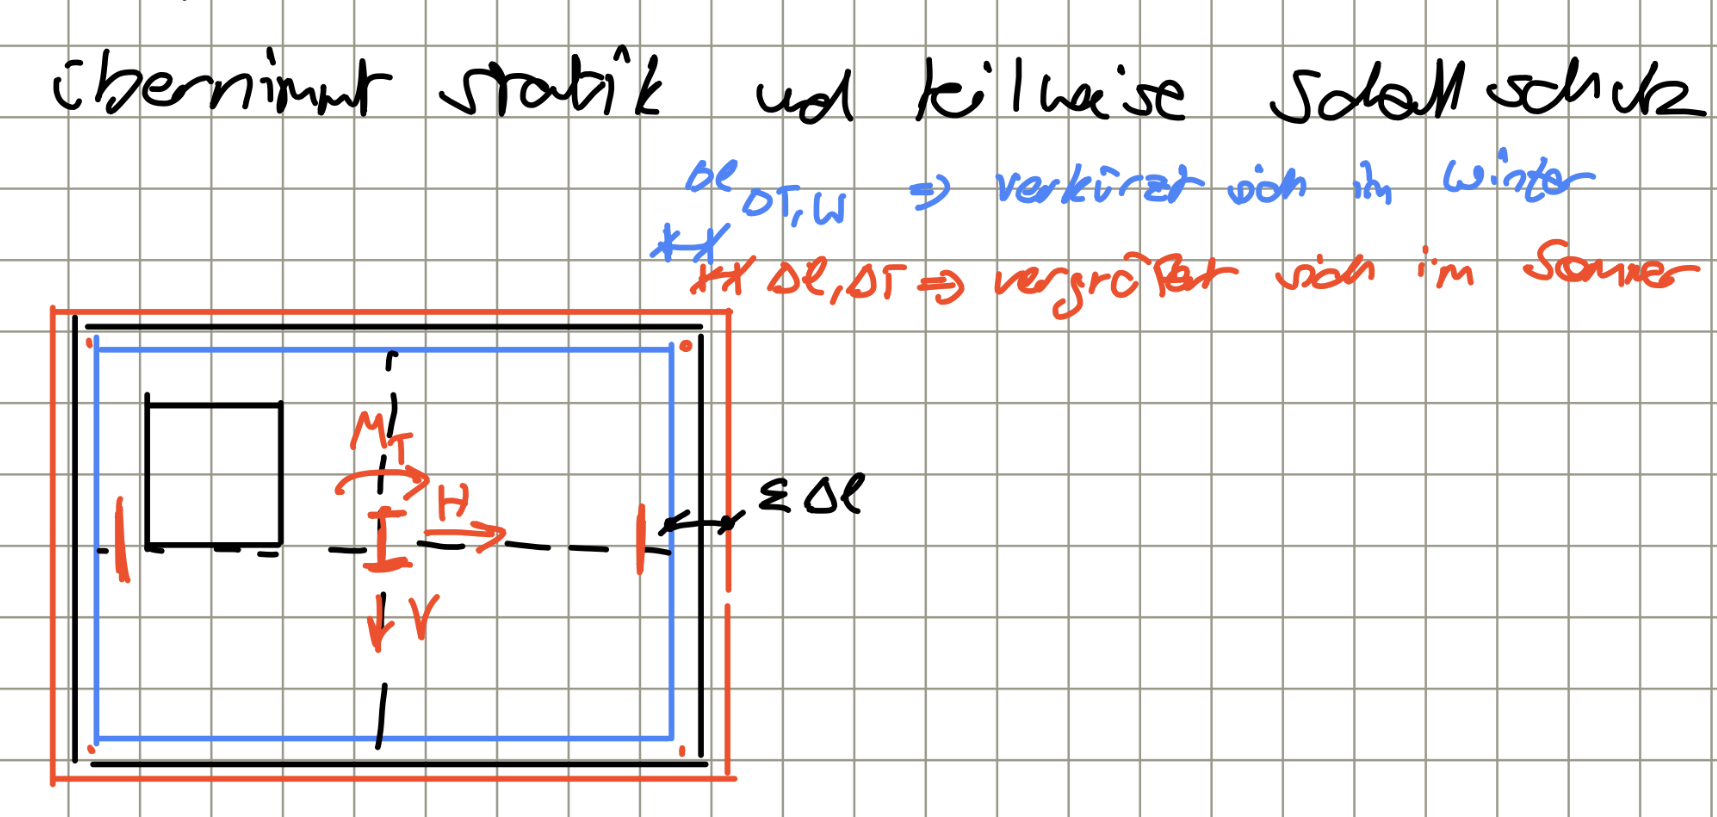 übernimmt statik und teilweise Schallschutz
Δl ΔT,W ⇒ verkürzt sich im Winter
Δl,ΔT ⇒ vergrößert sich im Sommer
M_T
H
Σ Δl
V